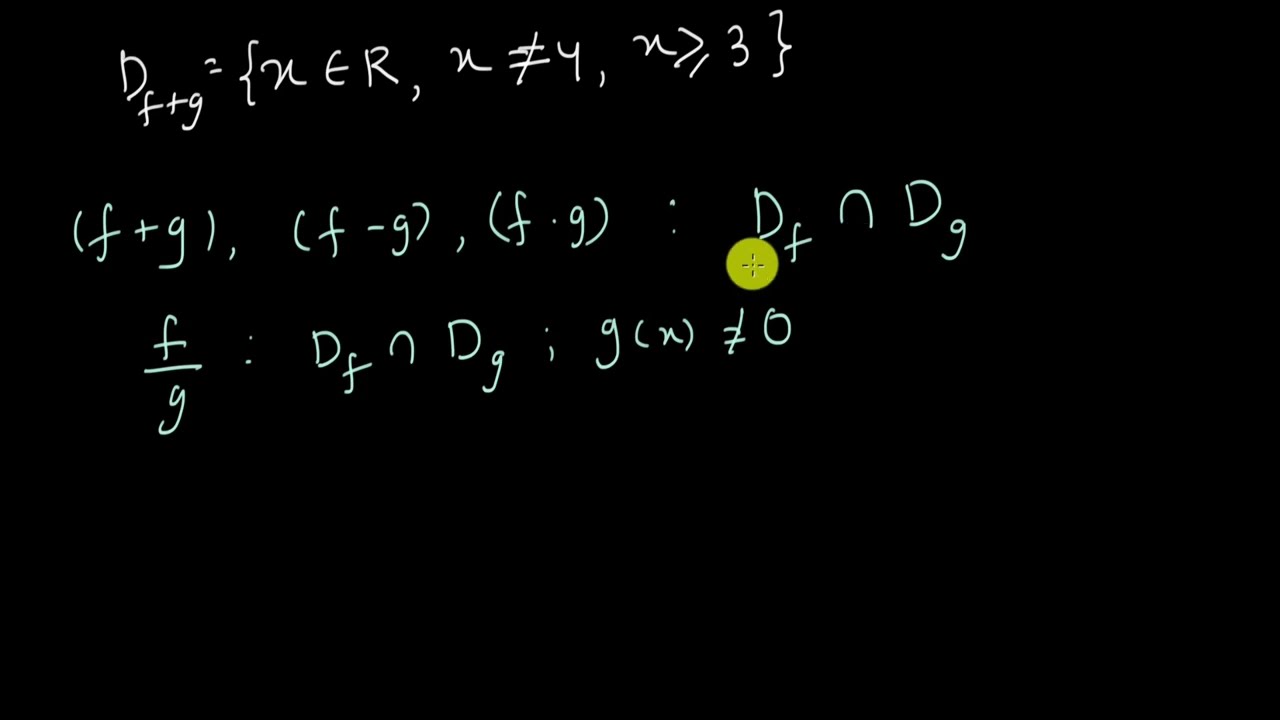 D_{f+g} = {x ∈ R, x ≠ 4, x ⩾ 3}
(f+g), (f-g), (f·g) : D_f ∩ D_g
f/g : D_f ∩ D_g ; g(x) ≠ 0